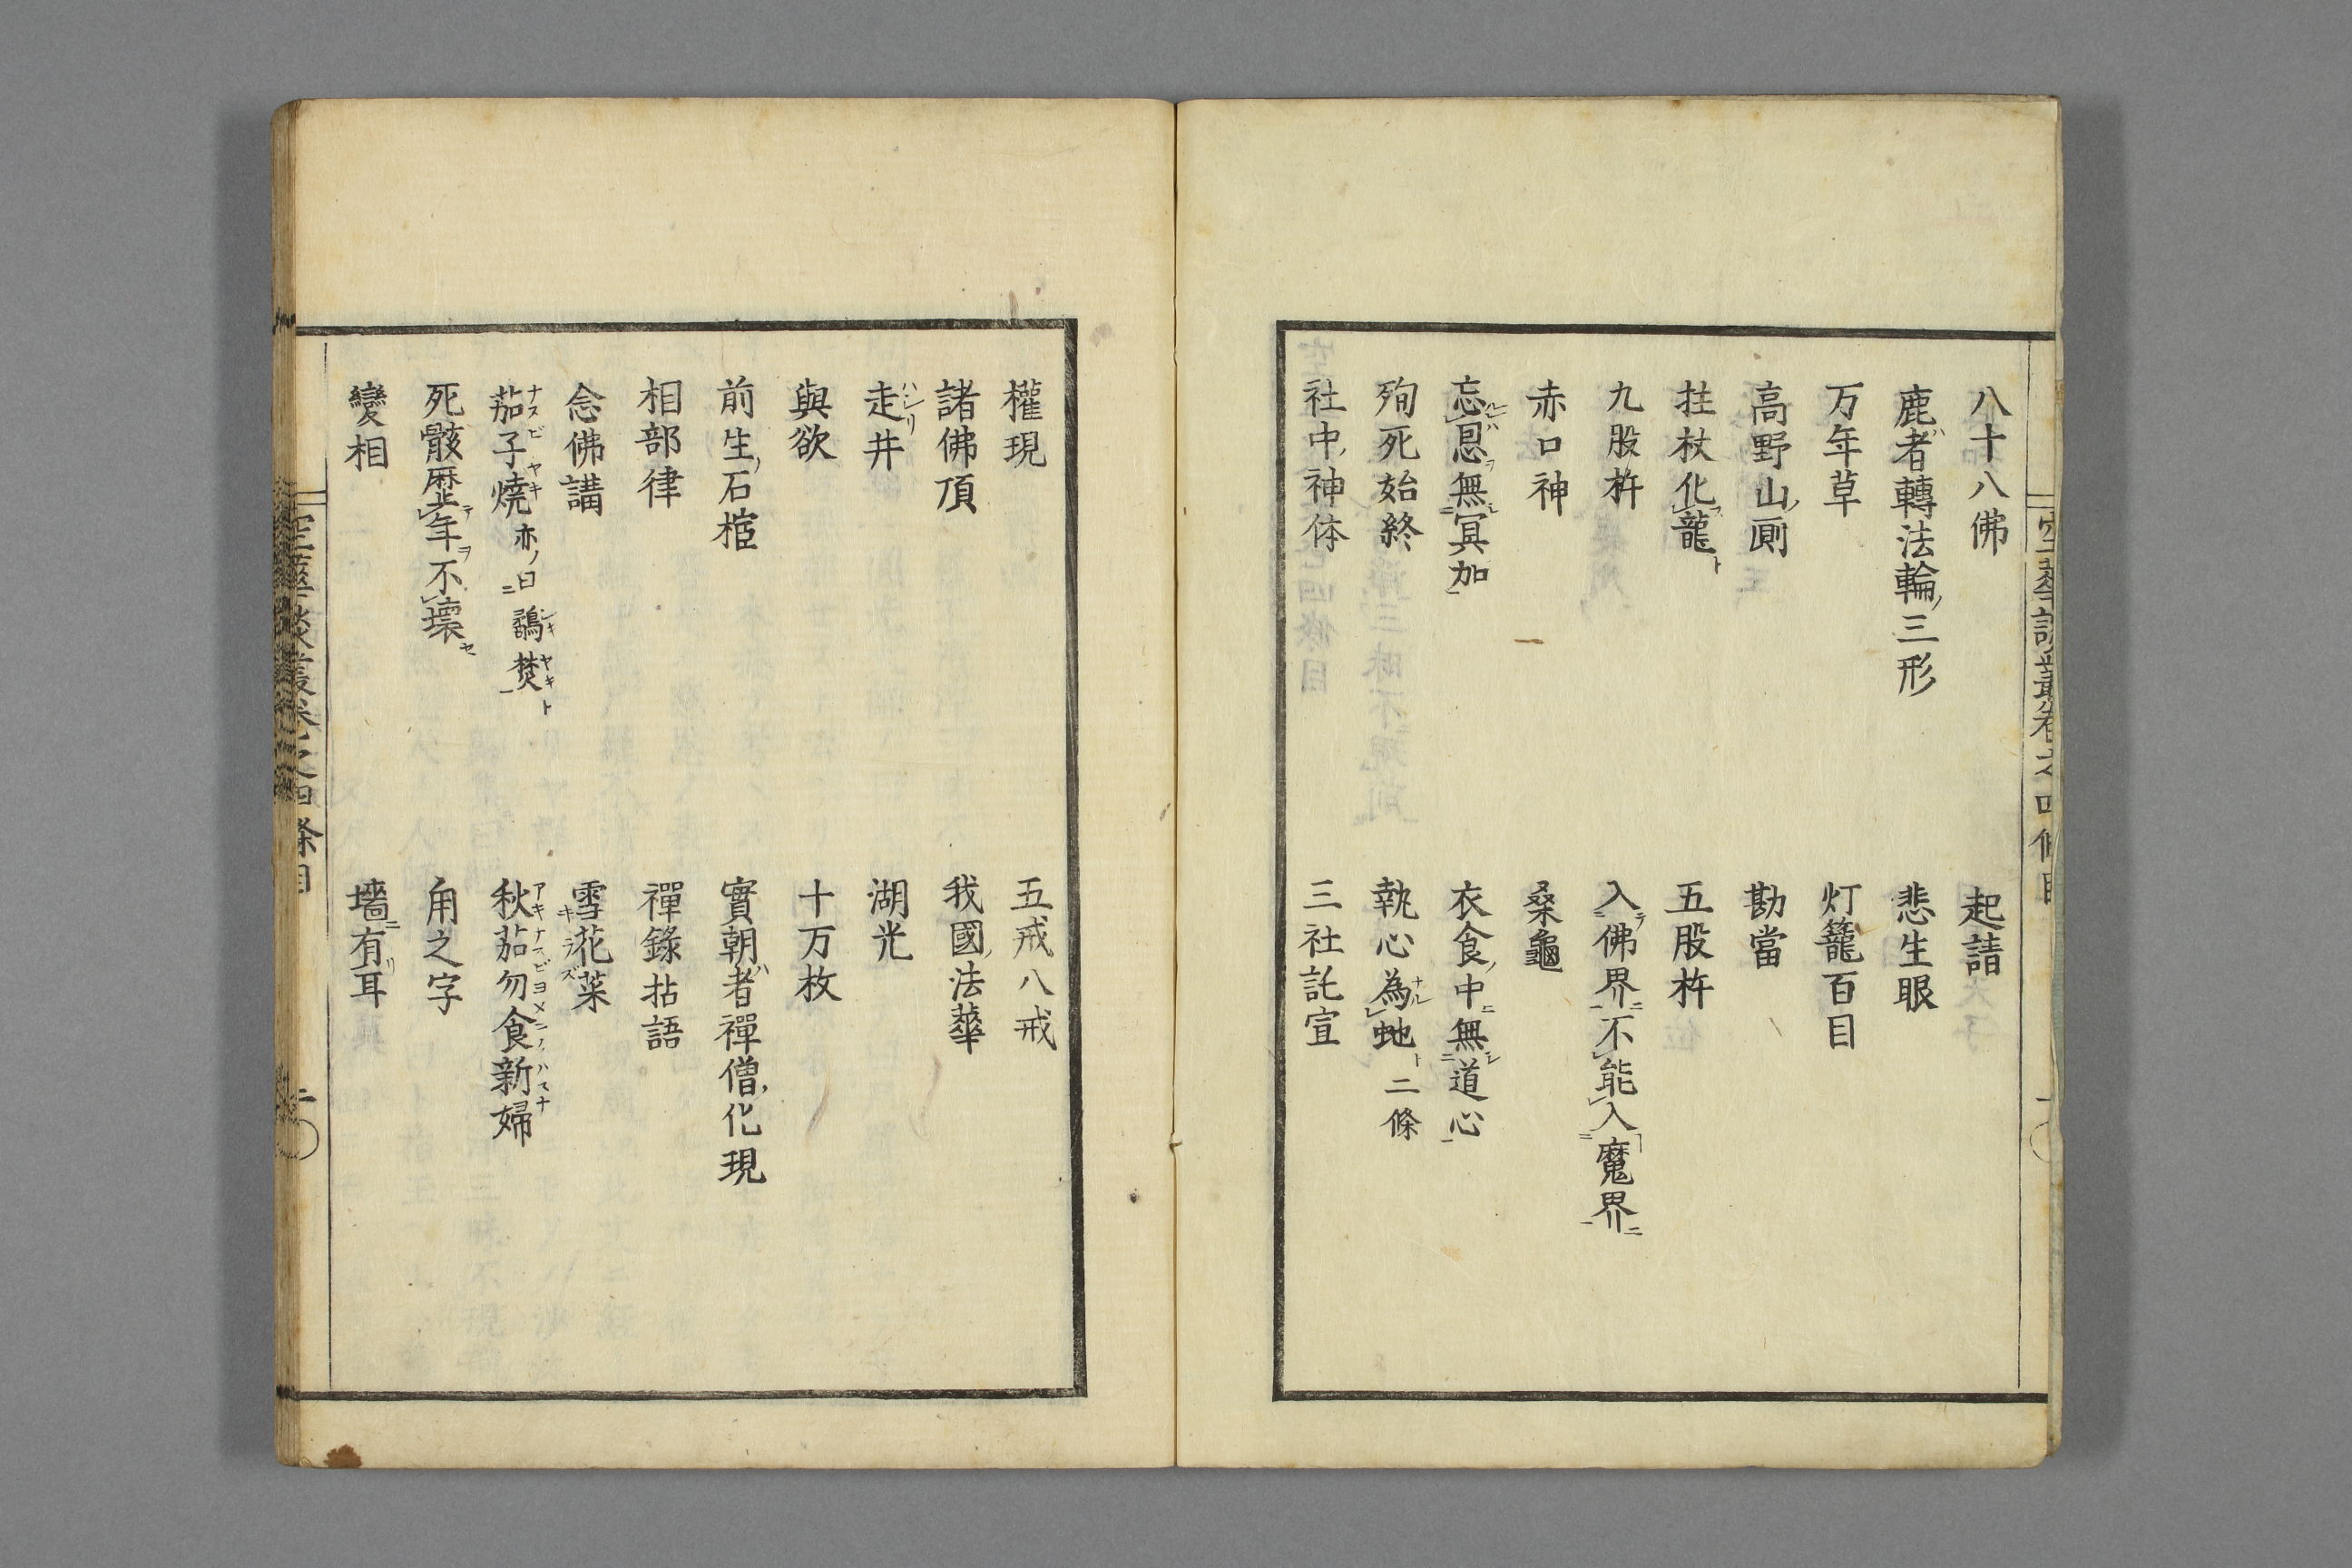 八十八佛　起請
鹿者轉法輪ノ三形　悲生眼
万年草　灯籠百目
高野山ノ厠　勘當
拄杖化龍　五股杵
九股杵　入佛界不能入魔界
赤口神　桑龜
忘恩無冥加　衣食ノ中無道心
殉死始終　執心為虵二條
社中ノ神体　三社託宣
權現　五戒八戒
諸佛頂　我國ノ法華
走井　湖光
與欲　十万枚
前生ノ石樒　實朝者禪僧ノ化現
相部律　禪錄拈語
念佛講　雪花菜
茄子燒亦ノ曰鷸焚　秋茄勿食新婦
死骸歷年不壞　角之字
變相　墻有耳
空華談叢卷之四條目　二